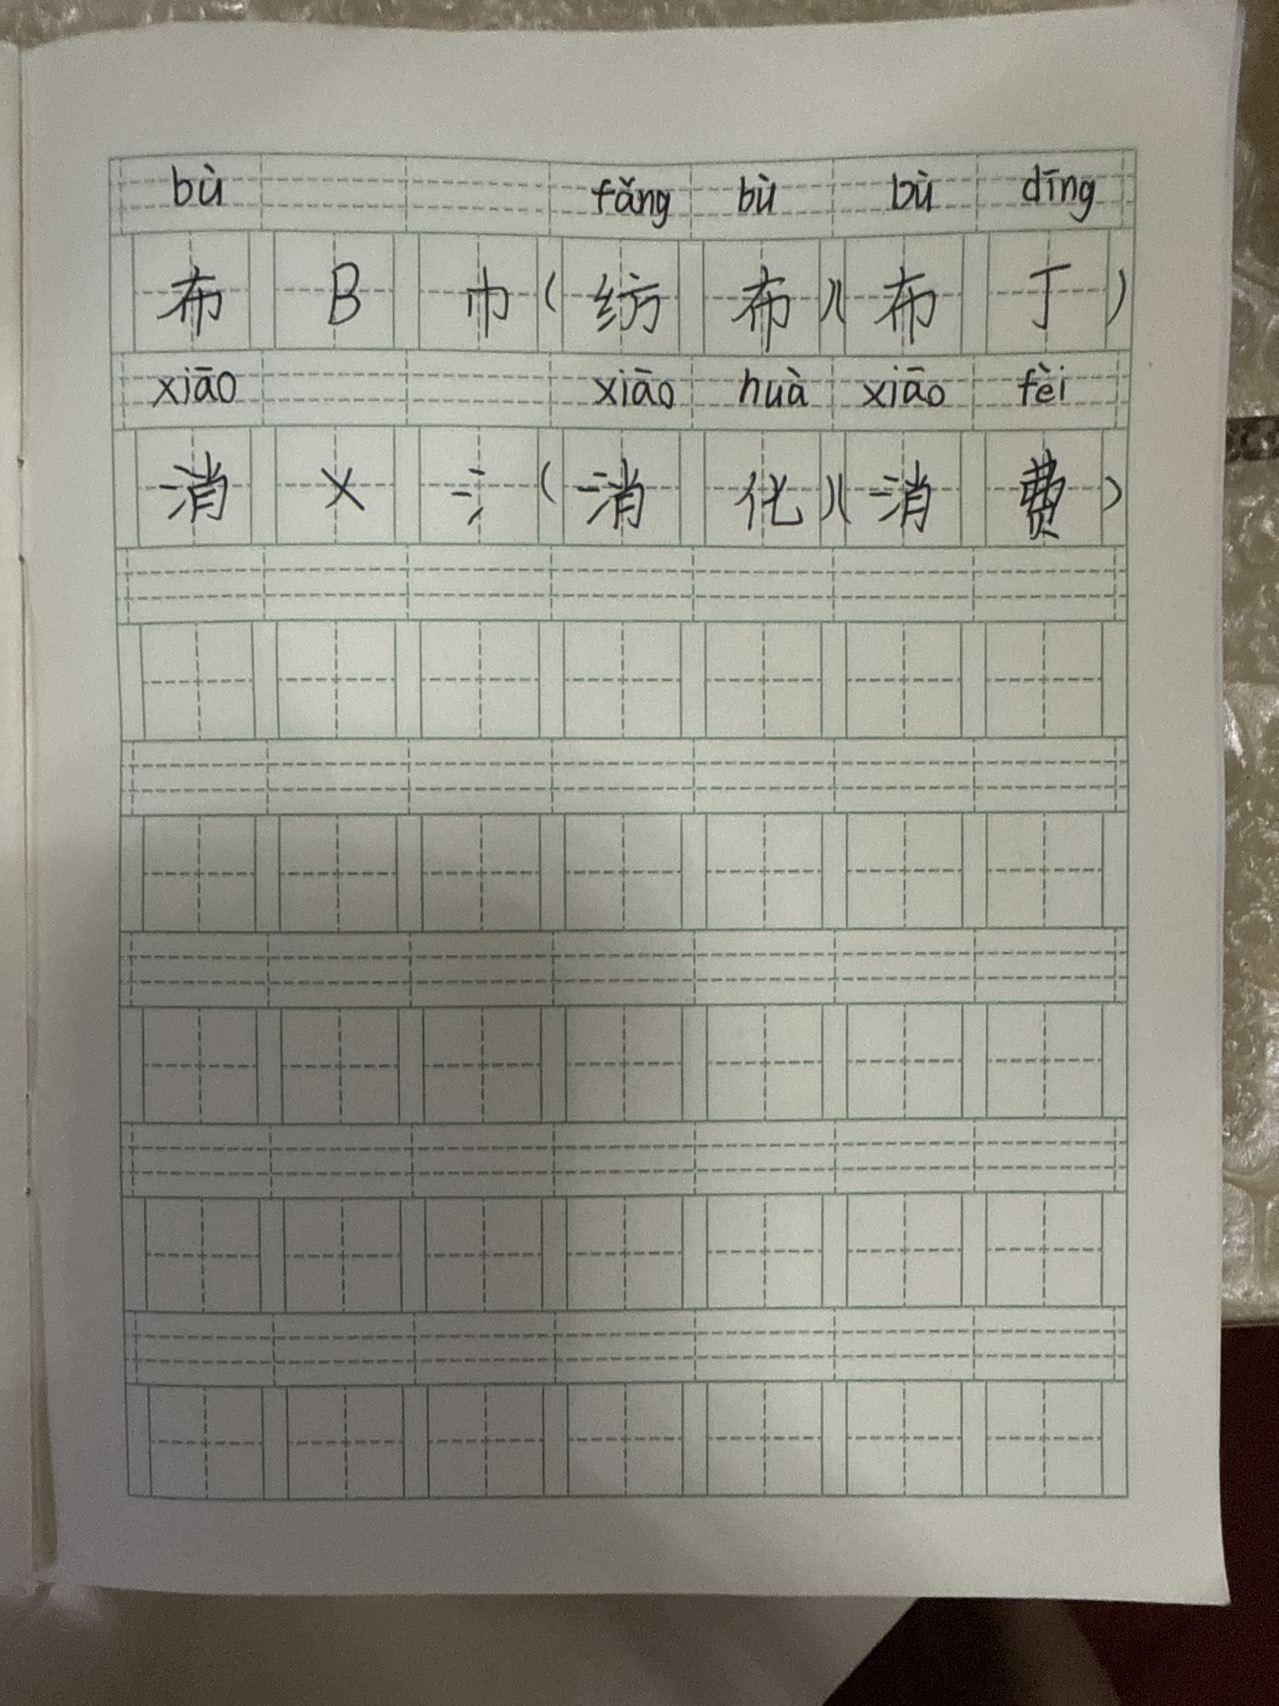 bù fǎng bù bù dīng
布 B 巾 (纺 布)(布 丁)
xiāo xiāo huà xiāo fèi
消 X 氵(消 化)(消 费)